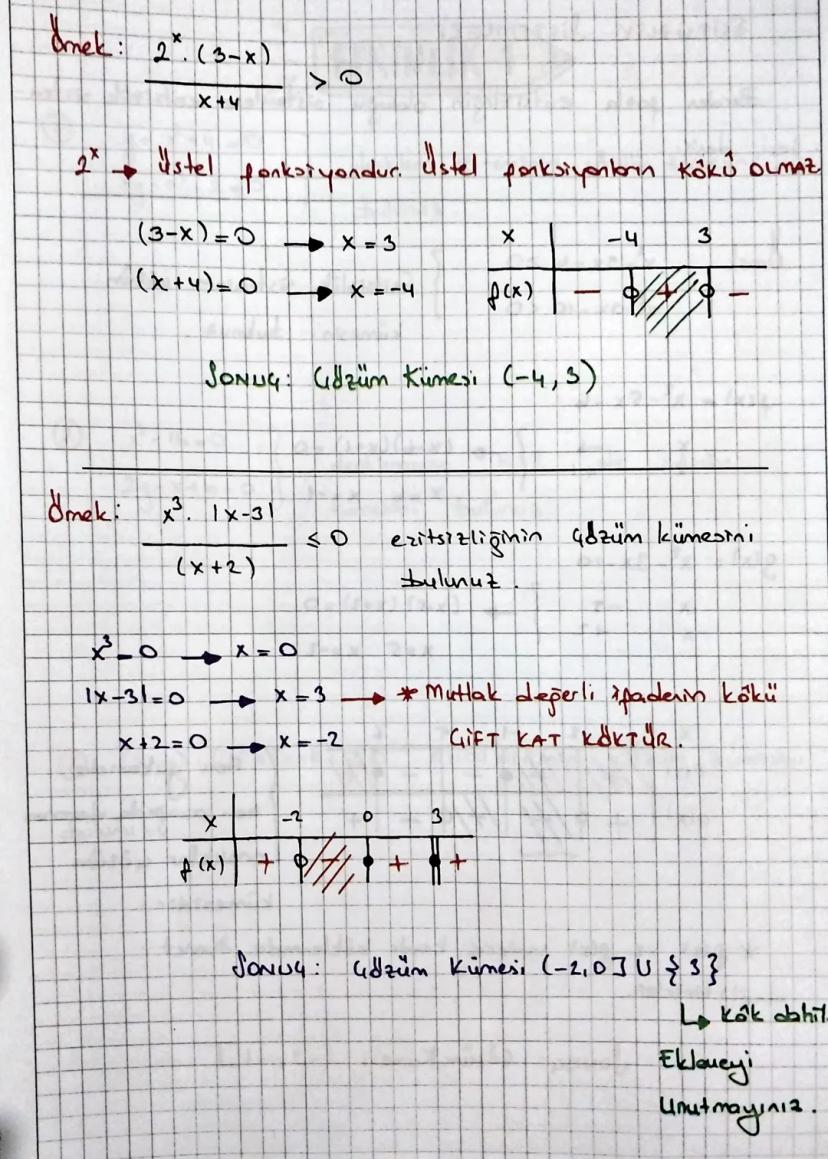 Örnek: 2^x . (3-x) / x+4 > 0
2^x → Üstel fonksiyondur. Üstel fonksiyonların KÖKÜ OLMAZ
(3-x)=0 → x=3
(x+4)=0 → x=-4
x | -4 3
f(x) | - + -
SONUÇ: Çözüm Kümesi (-4,3)
Örnek: x³ . |x-3| / (x+2) ≤ 0 eşitsizliğinin çözüm kümesini
bulunuz.
x³=0 → x=0
|x-3|=0 → x=3 → * Mutlak değerli ifadenin kökü
ÇİFT KAT KÖKTÜR.
x+2=0 → x=-2
x | -2 0 3
f(x) | + - + +
SONUÇ: Çözüm Kümesi (-2,0] U {3}
↳ Kök dahil
Eklemeyi
Unutmayınız.